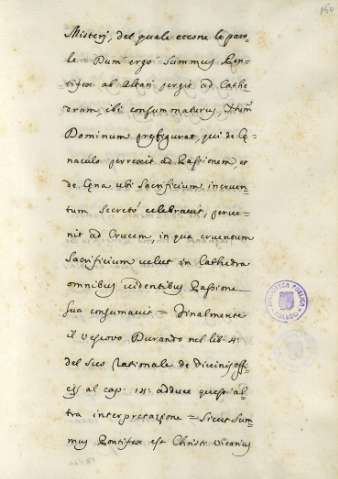 Misterj, del quale eccone le paro-
le Dum ergo Summus Pon-
tifex ab Altari pergit ad Cathe-
dram, ibi consummaturus, Christum
Dominum prefigurat, qui de Ce-
naculo perrexit ad Passionem, et
de Cena ubi Sacrificium incruen-
tum secretò celebravit, perve-
nit ad Crucem, in qua cruentum
Sacrificium velut in Cathedra
omnibus videntibus Passione
sua consumavit = Finalmente
il Vescovo Durando nel lib: 4:
del suo Rationale de Divinis off-
cijs al cap: adduce quest'al-
tra interpretazione = Sicut Sum-
mus Pontifex est Christi Vicarius
BIBLIOTECA PUBLICA
TOLEDO